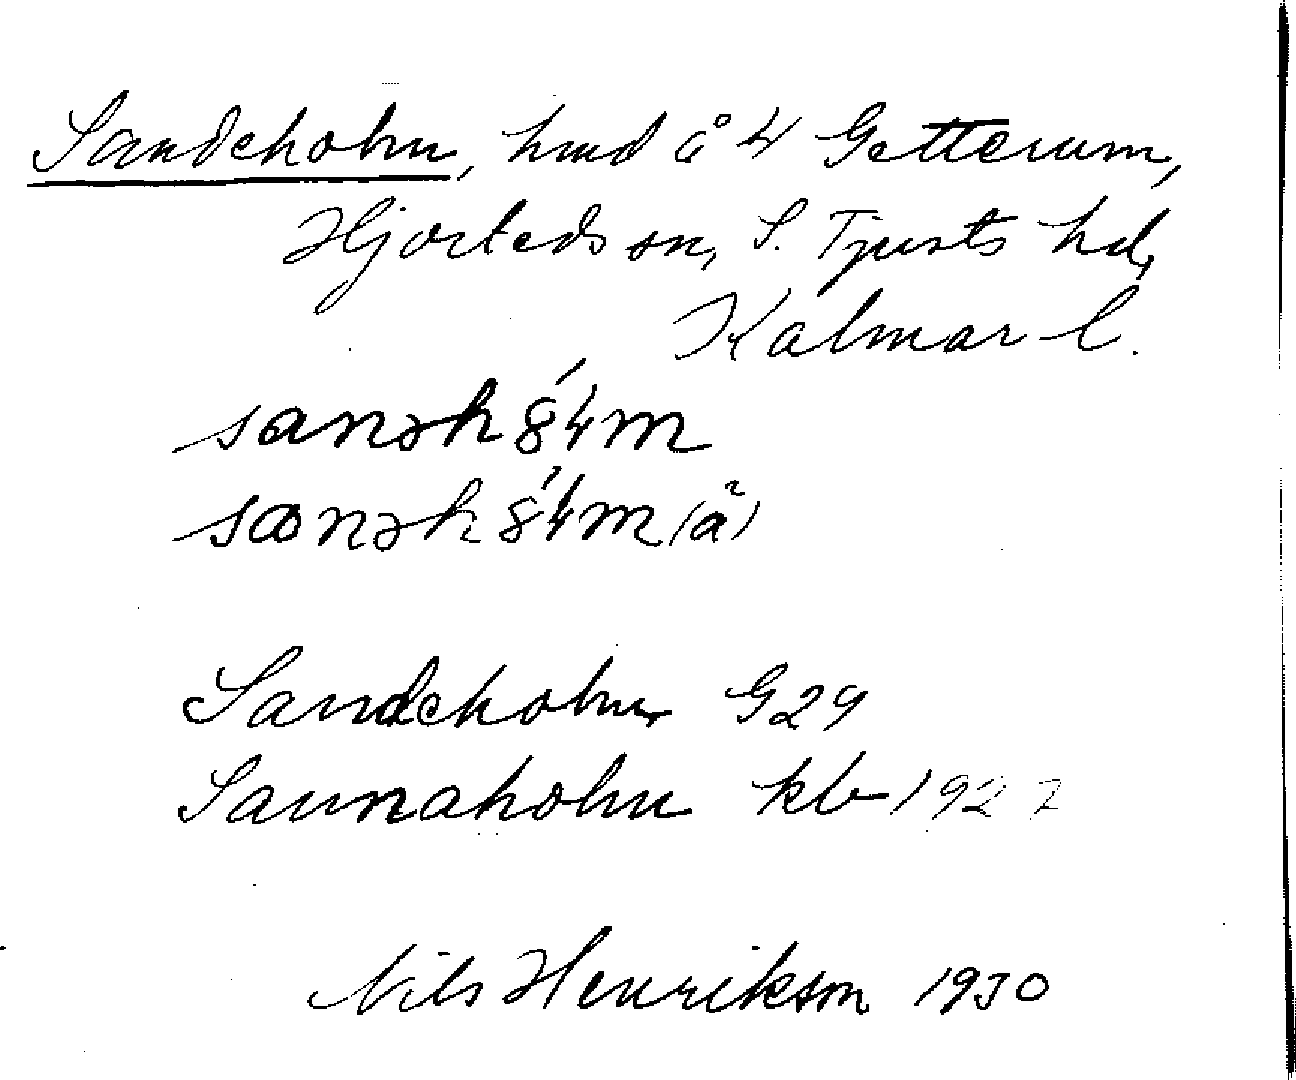 Sandeholm, hmd å 4 Getterum,
Hjorteds sn, S. Tjusts hd,
Kalmar l.
Sandeholm G29
Sannaholm kb 1927
Nils Henrikson 1930